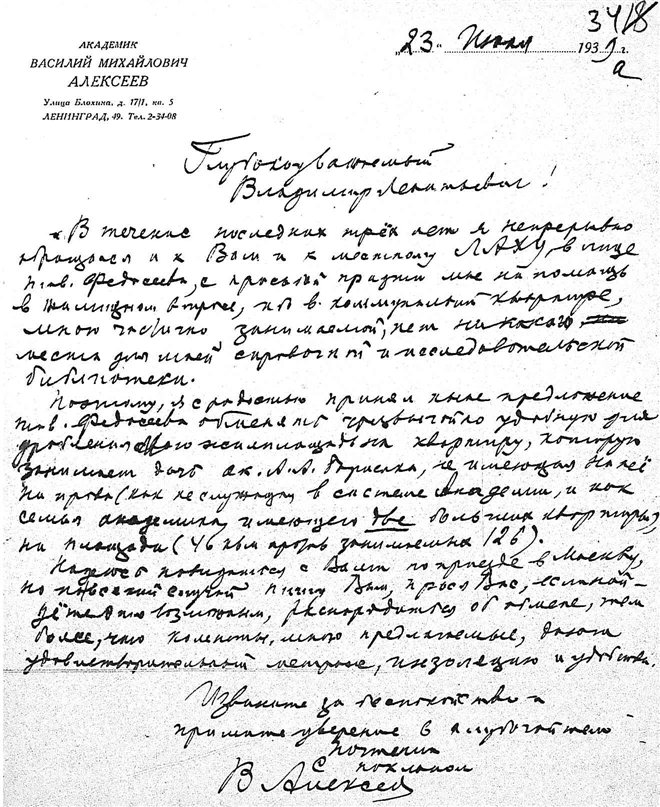 3418
АКАДЕМИК
ВАСИЛИЙ МИХАЙЛОВИЧ
АЛЕКСЕЕВ
Улица Блохина, д. 17/1, кв. 5
ЛЕНИНГРАД, 49. Тел. 2-34-08
„23“ Июля 1939 г.
а
Глубокоуважаемый
Владимир Леонтьевич!
В течение последних трёх лет я непрерывно
обращался и к Вам и к местному ЛАХУ, в лице
тов. Федосеева, с просьбой придти мне на помощь
в жилищном вопросе, ибо в коммунальной квартире,
мною частично занимаемой, нет никакого
места для моей справочной и исследовательской
библиотеки.
Поэтому, я с радостью принял ныне предложение
тов. Федосеева обменять чрезвычайно удобную для
дробления мою жилплощадь на квартиру, которую
занимает дочь ак. А.А. Борисяка, не имеющая на неё
ни права (как не служащая в системе Академии, и как
семья академика, имеющего две больших квартиры),
ни площади (46 кв.м против занимаемых 126).
Надеюсь повидаться с Вами по приезде в Москву,
но на всякий случай пишу Вам, прося Вас, если най-
дёте это возможным, распорядиться об обмене, тем
более, что комнаты, мною предлагаемые, дают
удовлетворительный метраж, инзоляцию и удобства.
Извините за беспокойство и
примите уверение в глубочайшем
почтении
С поклоном
В Алексеев